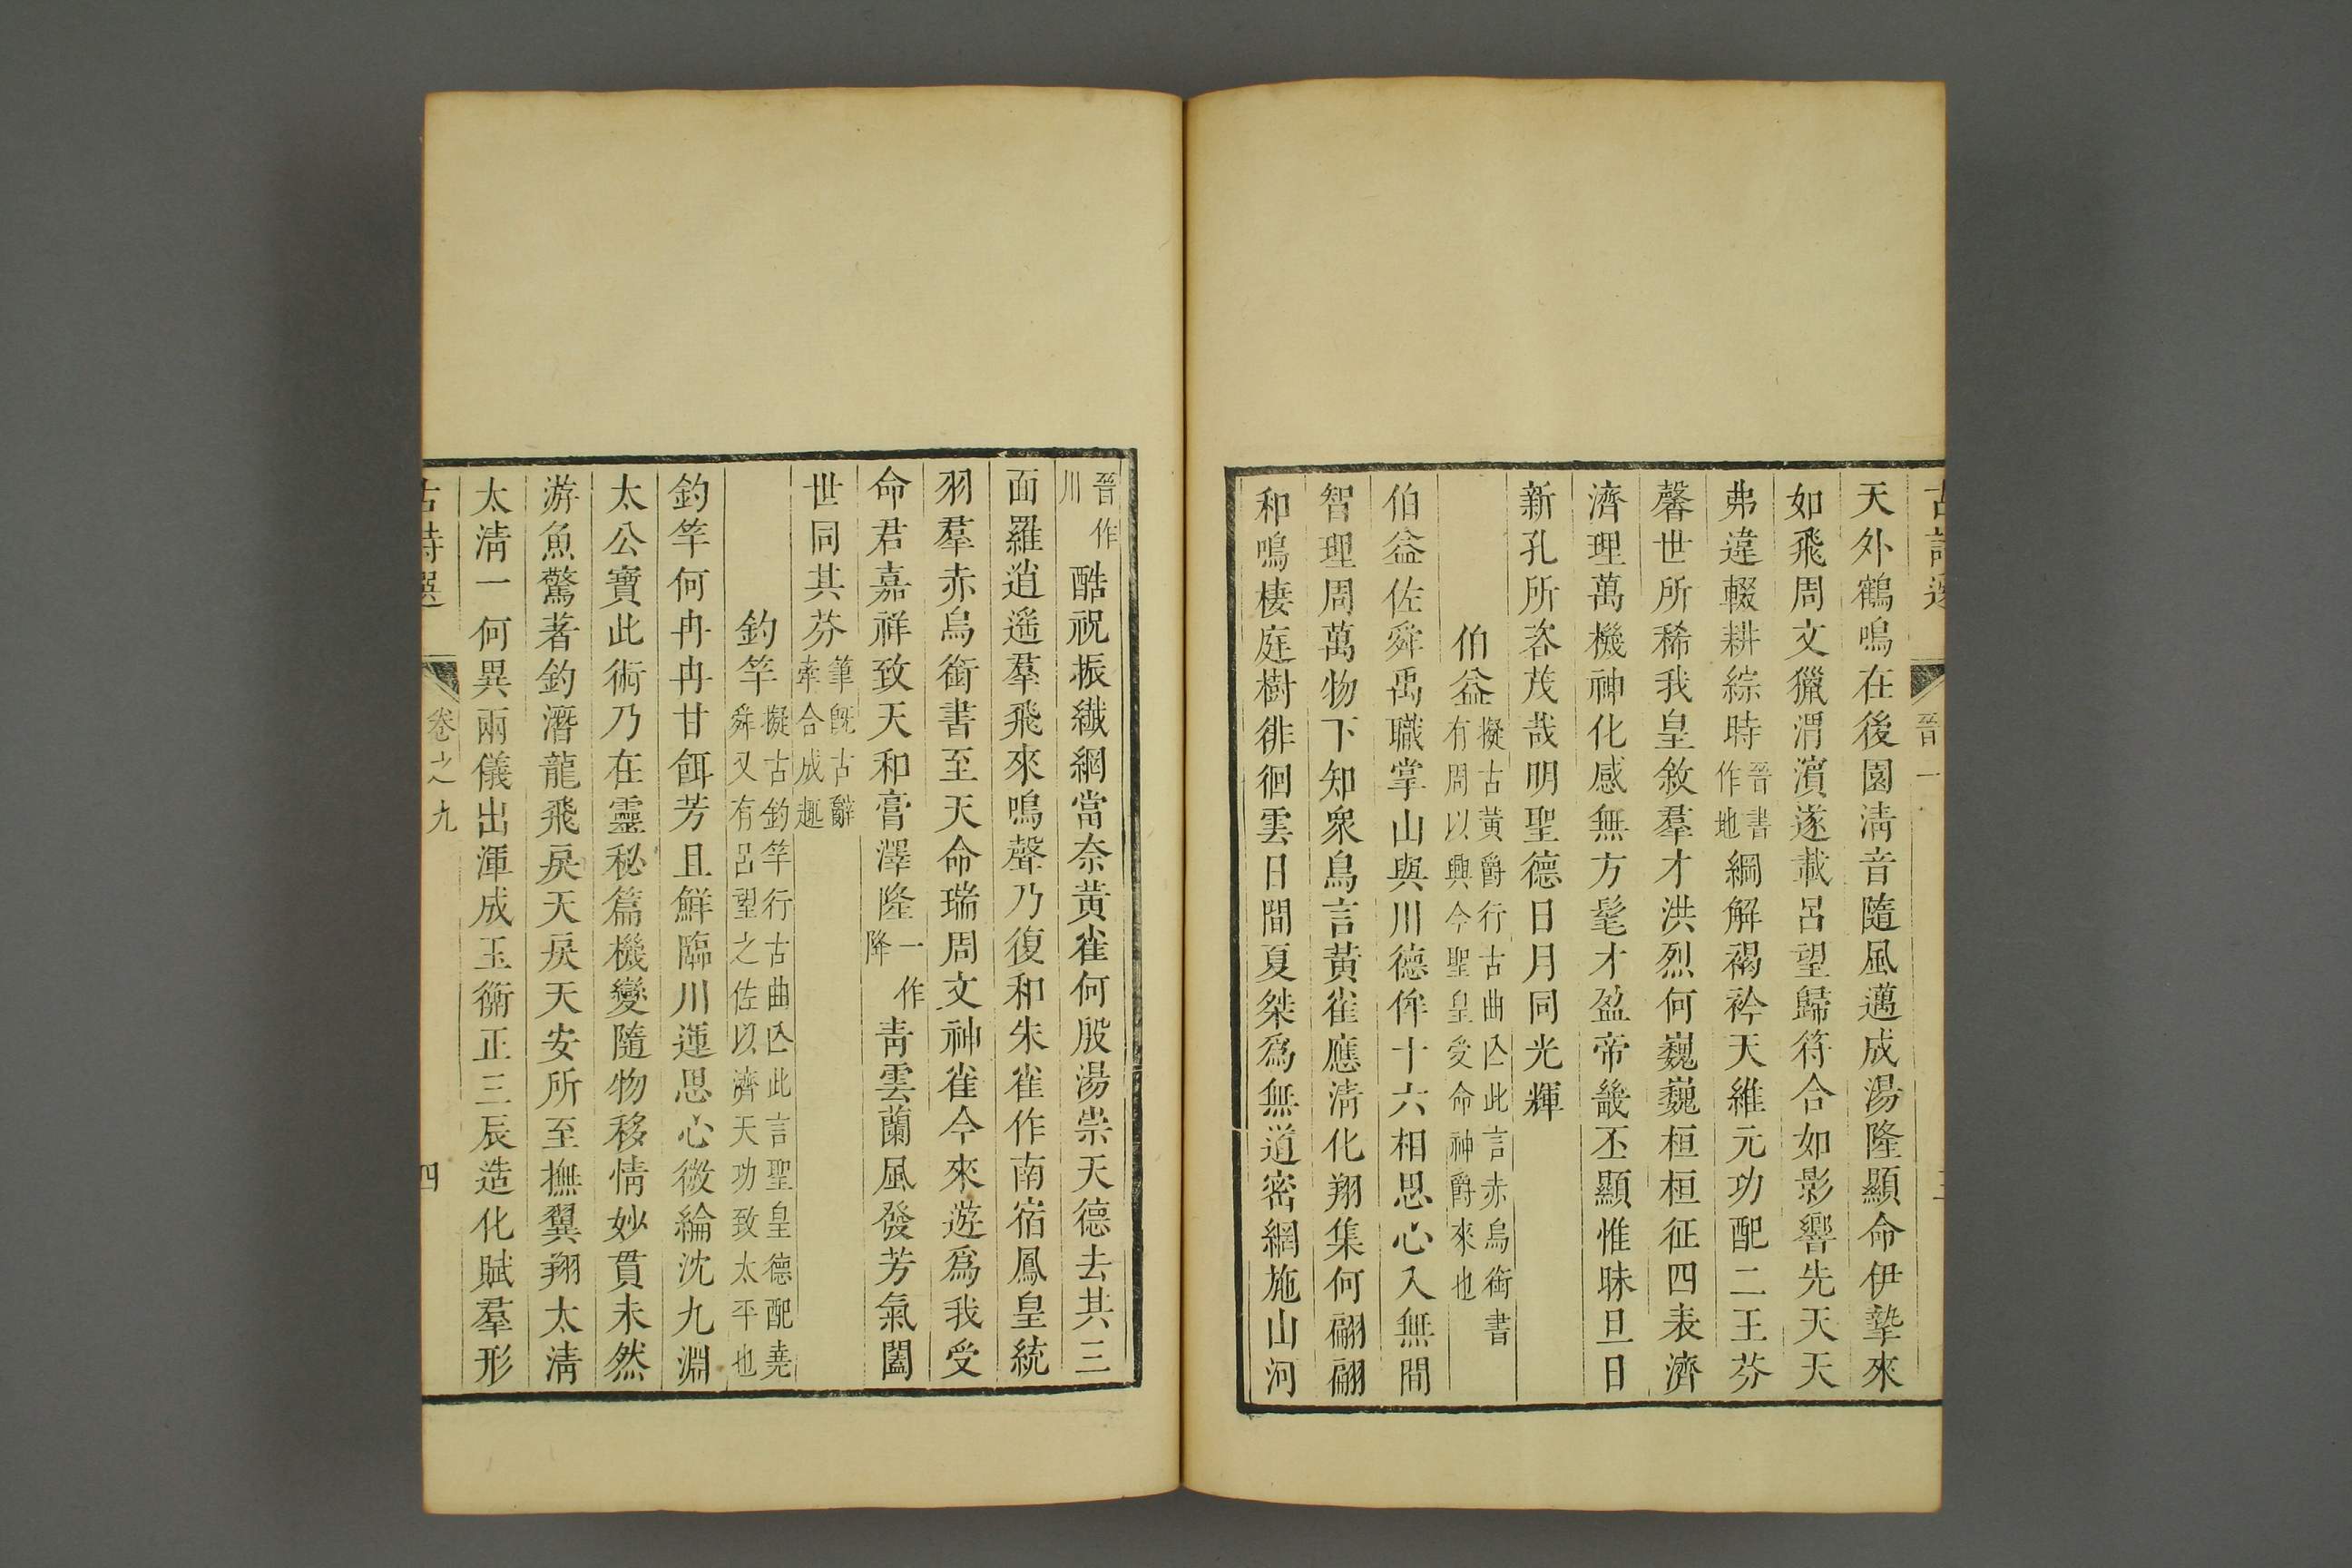 晉一
天外鶴鳴在後園淸音隨風邁成湯隆顯命伊摯來
如飛周文獵渭濱遂載呂望歸符合如影響先天天
弗違輟耕綜時
晉書
作地
綱解褐衿天維元功配二王芬
馨世所稀我皇敘羣才洪烈何巍巍桓桓征四表濟
濟理萬機神化感無方髦才盈帝畿丕顯惟昧旦日
新孔所咨茂哉明聖德日月同光輝
伯益
擬古黃爵行古曲亾此言赤烏銜書
有周以興今聖皇受命神爵來也
伯益佐舜禹職掌山與川德侔十六相思心入無間
智理周萬物下知衆鳥言黃雀應淸化翔集何翩翩
和鳴棲庭樹徘徊雲日間夏桀爲無道密網施山河
晉作
川
酷祝振纖網當奈黃雀何殷湯崇天德去其三
面羅逍遙羣飛來鳴聲乃復和朱雀作南宿鳳皇統
羽羣赤烏銜書至天命瑞周文神雀今來遊爲我受
命君嘉祥致天和膏澤隆
一作
降
靑雲蘭風發芳氣闔
世同其芬
筆旣古辭
牽合成趣
釣竿
擬古釣竿行古曲亾此言聖皇德配堯
舜又有呂望之佐以濟天功致太平也
釣竿何冉冉甘餌芳且鮮臨川運思心微綸沈九淵
太公寶此術乃在靈秘篇機變隨物移情妙貫未然
游魚驚著釣潛龍飛戾天戾天安所至撫翼翔太淸
太淸一何異兩儀出渾成玉衡正三辰造化賦羣形
古詩選
卷之九
四